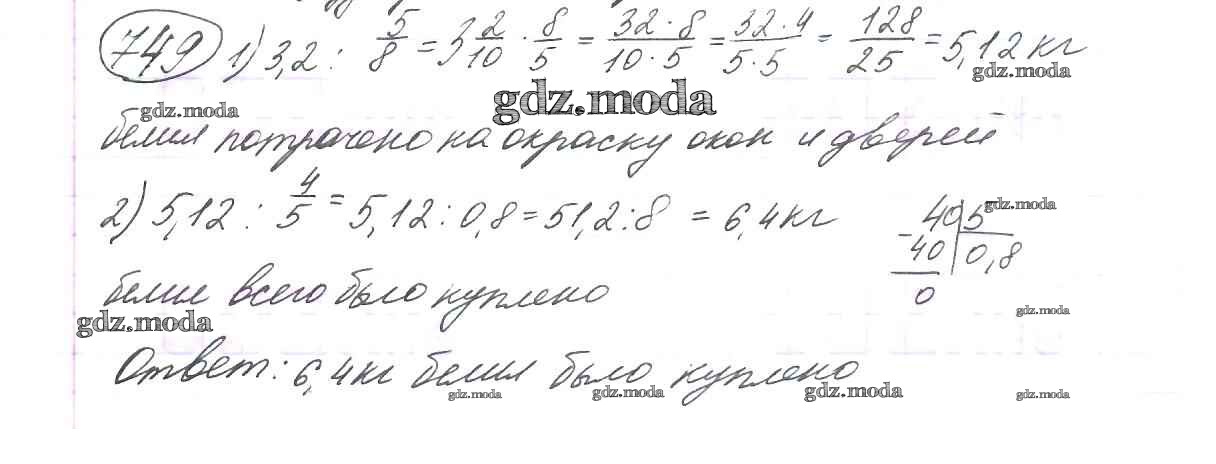 749 1) 3,2 : 5/8 = 3 2/10 · 8/5 = 32·8/10·5 = 32·4/5·5 = 128/25 = 5,12 кг
gdz.moda
gdz.moda
gdz.moda
белил потрачено на окраску окон и дверей
2) 5,12 : 4/5 = 5,12 : 0,8 = 51,2 : 8 = 6,4 кг
gdz.moda
40 5
- 40 0,8
0
белил всего было куплено
gdz.moda
gdz.moda
Ответ: 6,4 кг белил было куплено
gdz.moda
gdz.moda
gdz.moda
gdz.moda